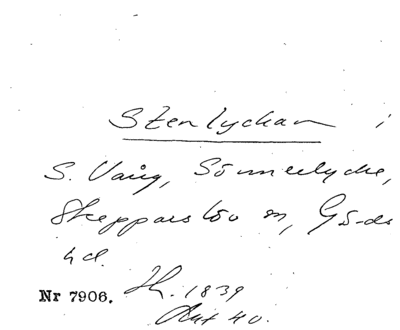 Stenlyckan i
S. Vång, Sönnerlycke,
Skepparslöv sn, Gärds
hd.
Nr 7906. 1839
Akt 40.